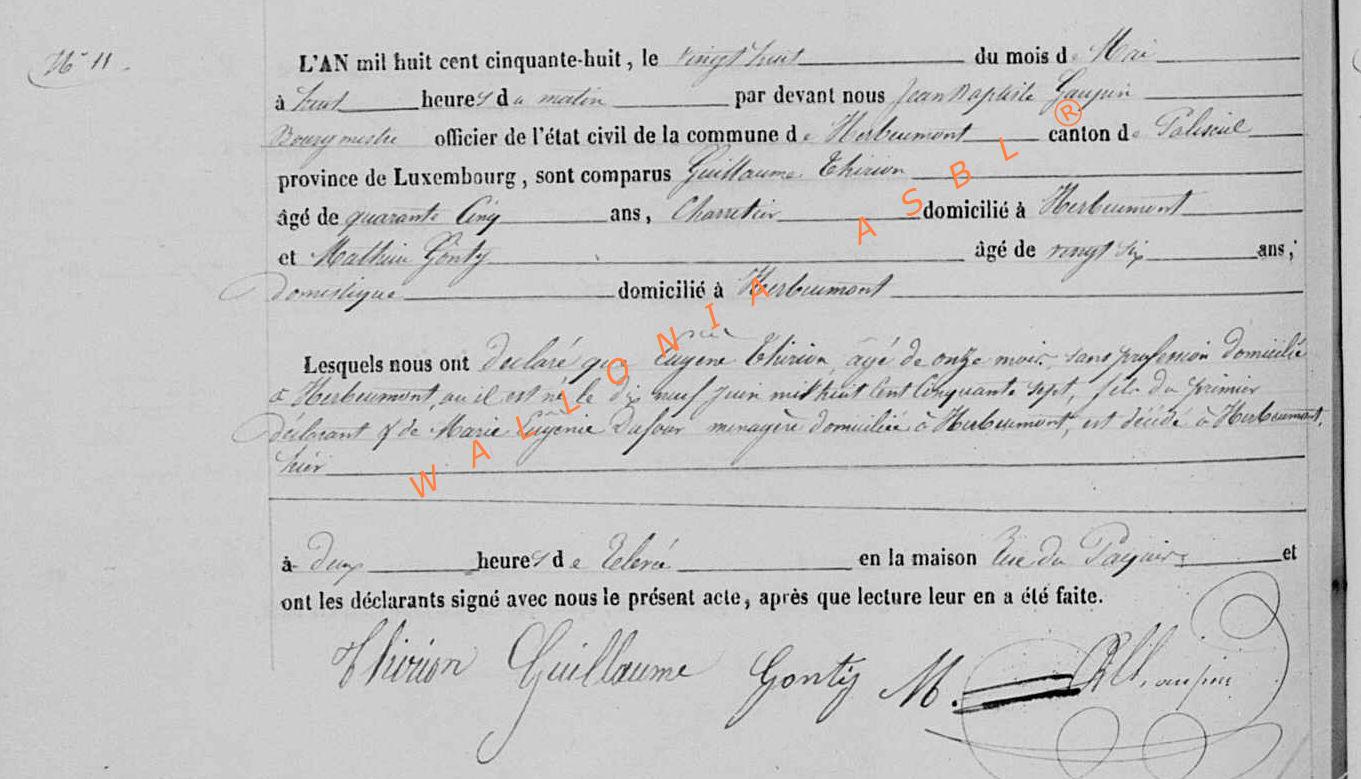 N° 11.
L'AN mil huit cent cinquante-huit, le vingt huit du mois de Mai
à huit heures du matin par devant nous Jean Baptiste
Bourgmestre officier de l'état civil de la commune de Herbeumont canton de Paliseul
province de Luxembourg, sont comparus Guillaume Thirion
âgé de quarante Cinq ans, Charretier domicilié à Herbeumont
et Mathieu Gonty âgé de vingt six ans,
domestique domicilié à Herbeumont
Lesquels nous ont déclaré que Eugène Thirion, âgé de onze mois, sans profession domicilié
à Herbeumont, où il est né le dix neuf Juin mil huit Cent Cinquante sept, fils du premier
déclarant & de Marie Eugénie Dufour ménagère domiciliée à Herbeumont, est décédé à Herbeumont,
hier
à deux heures de relevée en la maison Rue du et
ont les déclarants signé avec nous le présent acte, après que lecture leur en a été faite.
Thirion Guillaume Gontij M.
WALLONIA ASBL ®